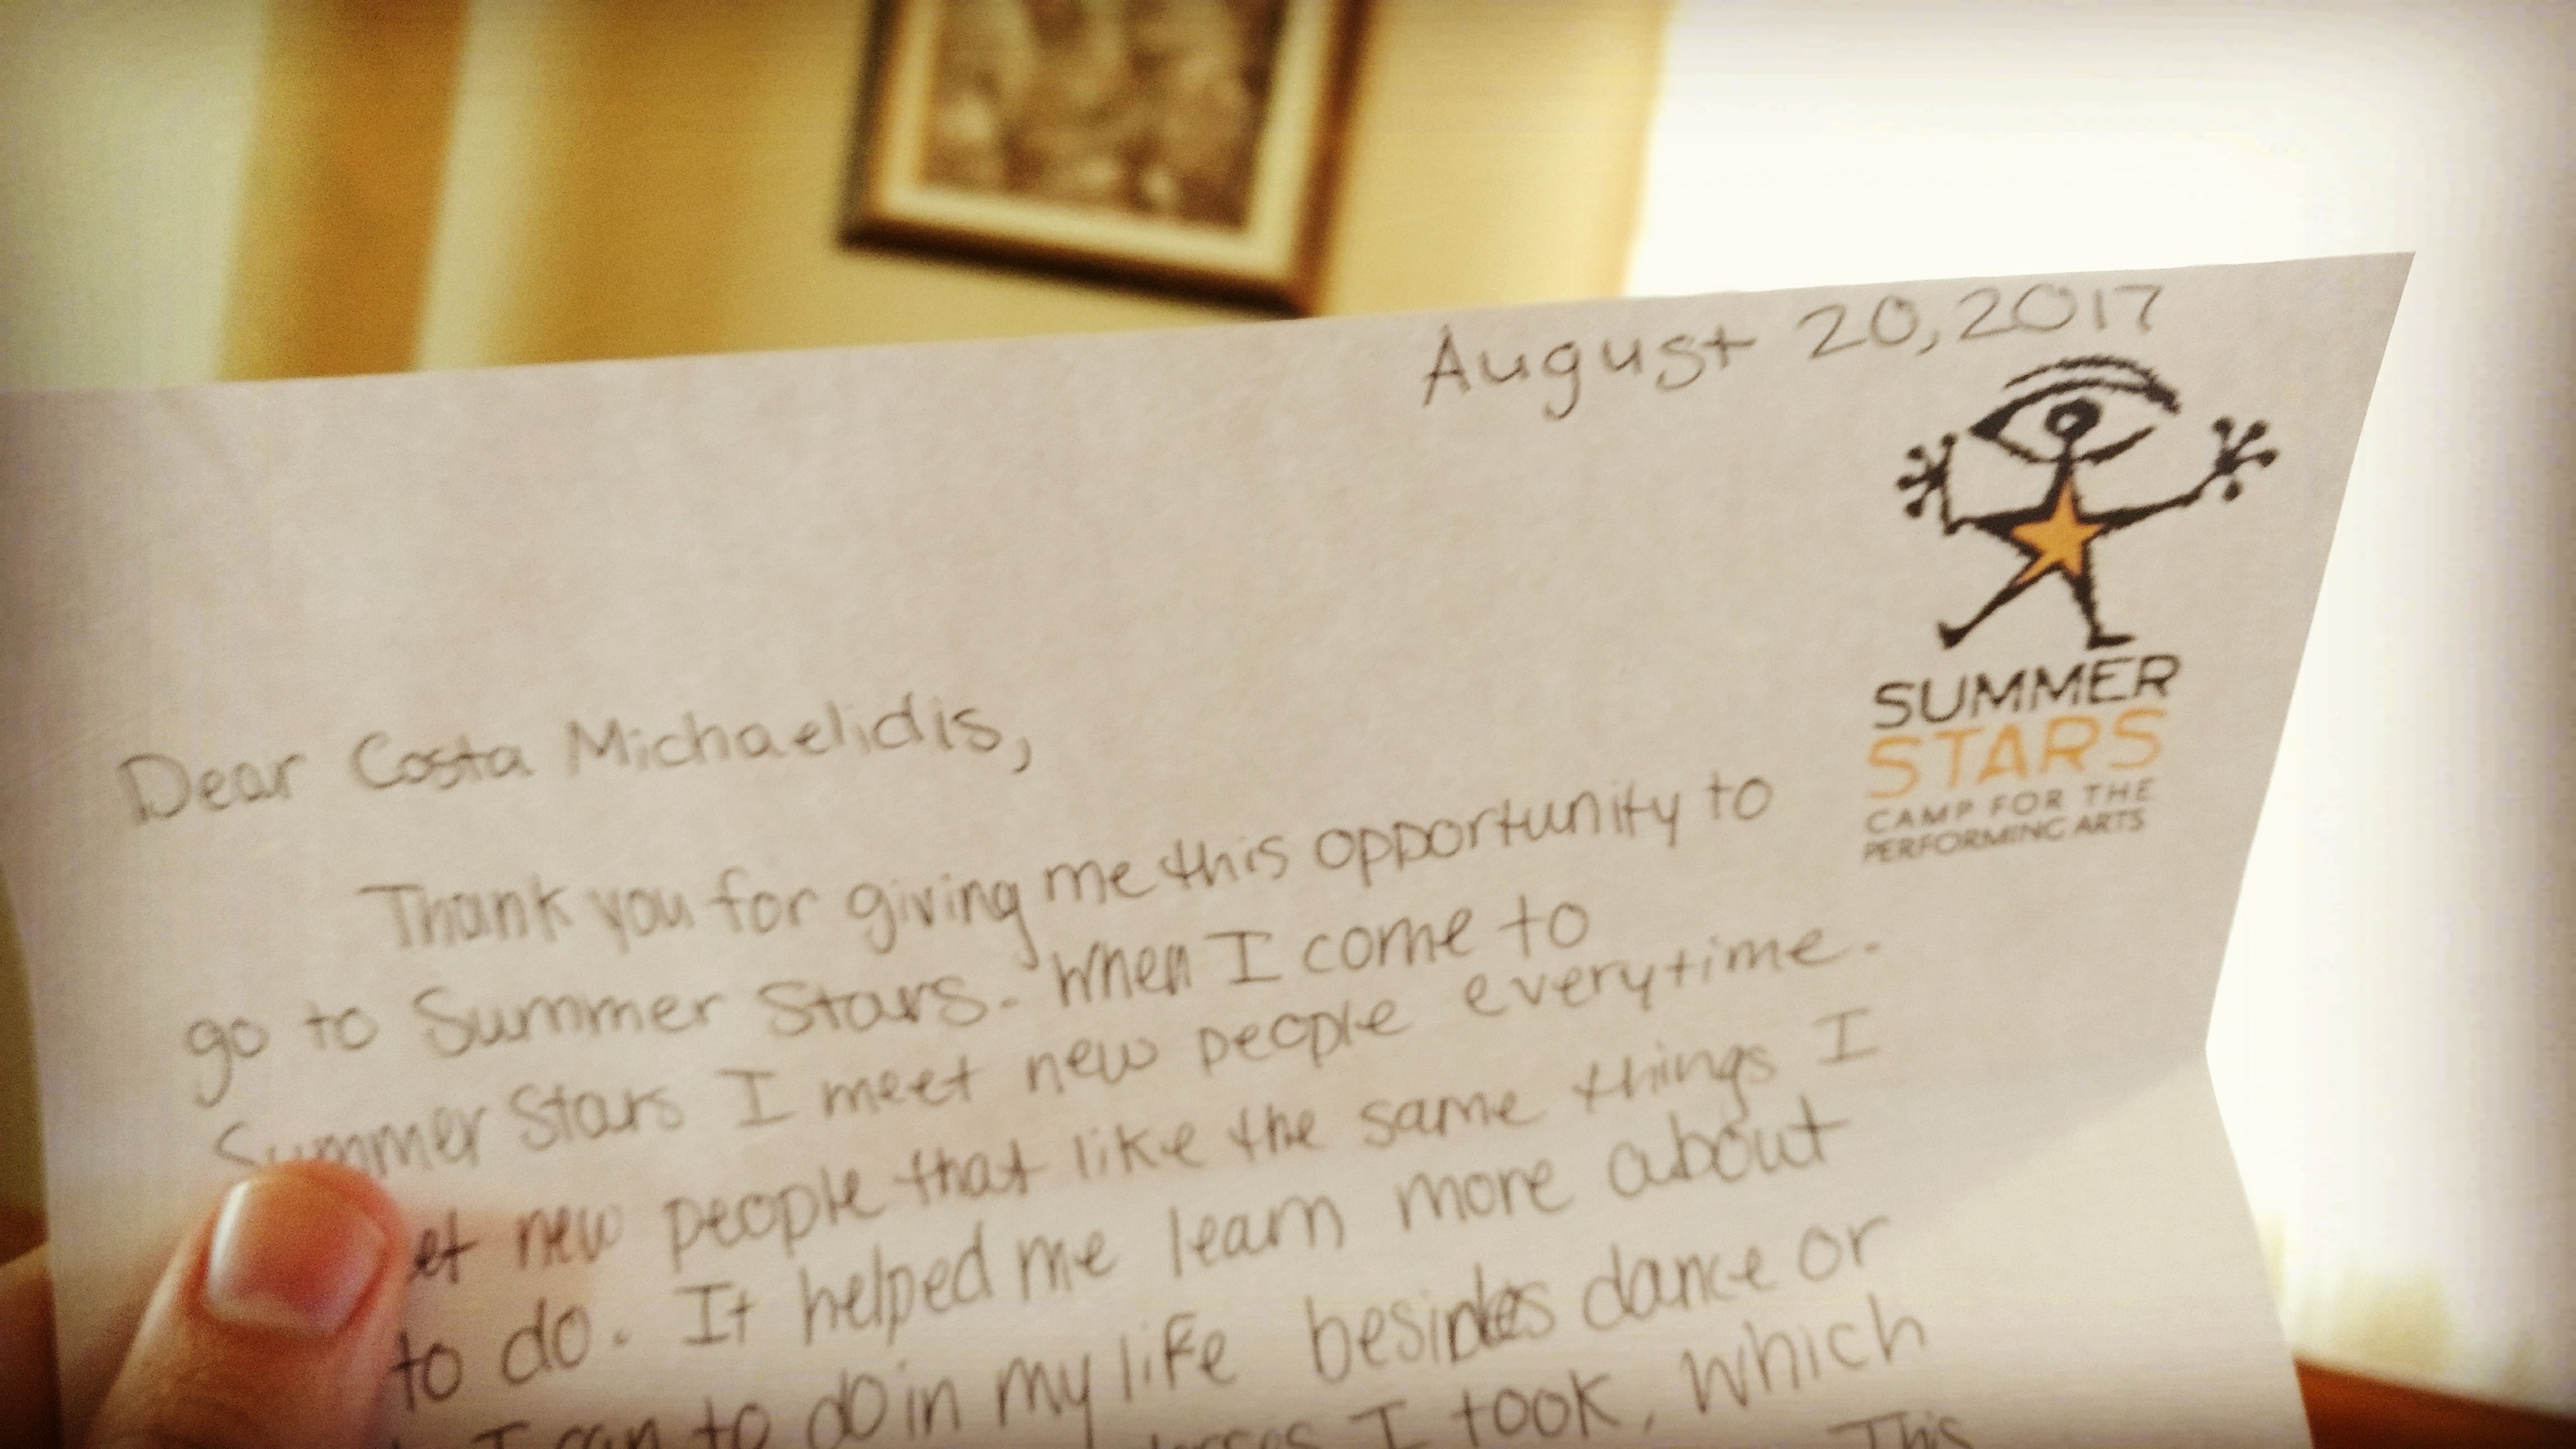 August 20, 2017
SUMMER
STARS
CAMP FOR THE
PERFORMING ARTS
Dear Costa Michaelidis,
Thank you for giving me this opportunity to
go to Summer Stars. When I come to
Summer Stars I meet new people everytime.
new people that like the same things I
to do. It helped me learn more about
I can to do in my life besides dance or
I took, which
This